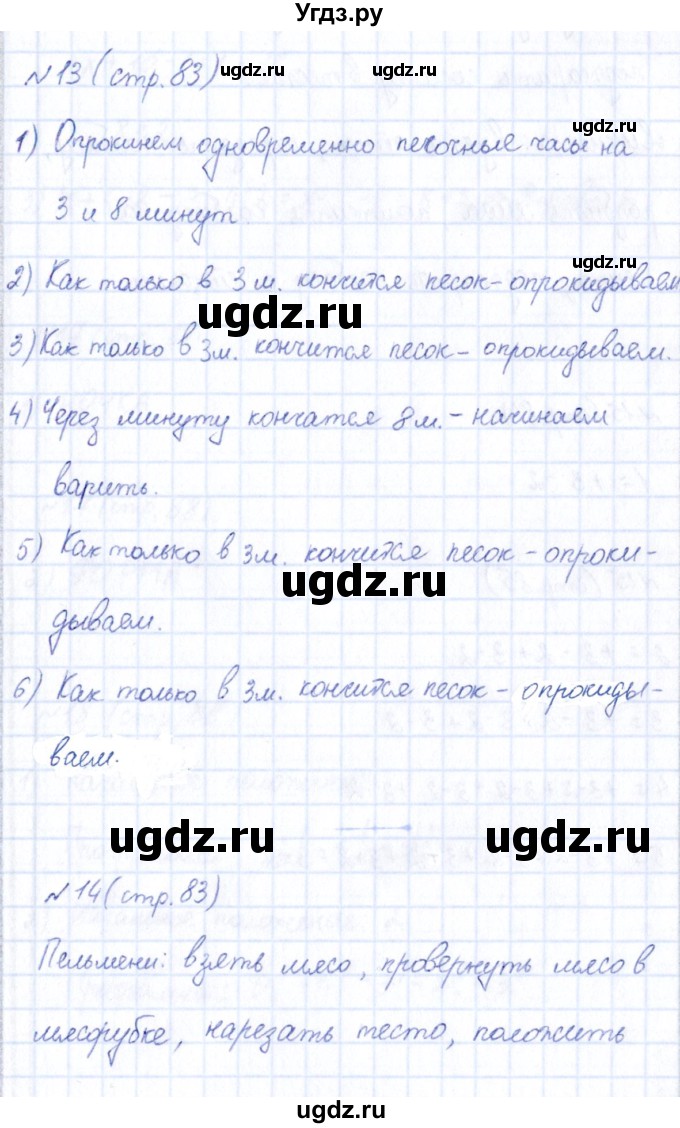 Угдз.ру
№13 (стр. 83)
ugdz.ru ugdz.ru
ugdz.ru
1) Опрокинем одновременно песочные часы на
3 и 8 минут.
ugdz.ru
2) Как только в 3 м. кончится песок - опрокидываем
ugdz.ru
3) Как только в 3 м. кончится песок - опрокидываем.
4) Через минуту кончатся 8 м. - начинаем
варить.
5) Как только в 3 м. кончится песок - опроки-
ugdz.ru
дываем.
6) Как только в 3 м. кончится песок - опрокиды-
ваем.
ugdz.ru ugdz.ru
№14 (стр. 83)
Пельмени: взять мясо, провернуть мясо в
мясорубке, нарезать тесто, положить
ugdz.ru